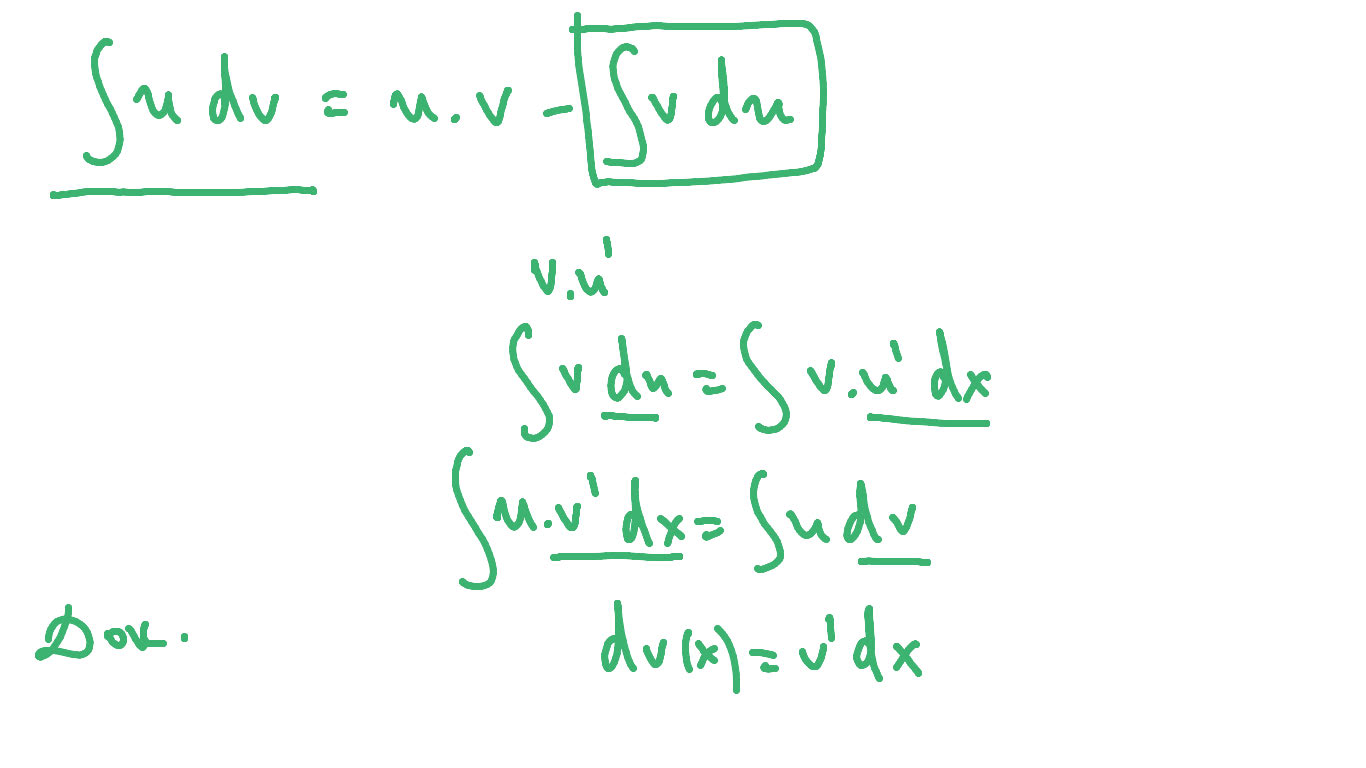 ∫ u dv = u . v - ∫ v du
v . u'
∫ v du = ∫ v . u' dx
∫ u . v' dx = ∫ u dv
dv(x) = v' dx
Dok.